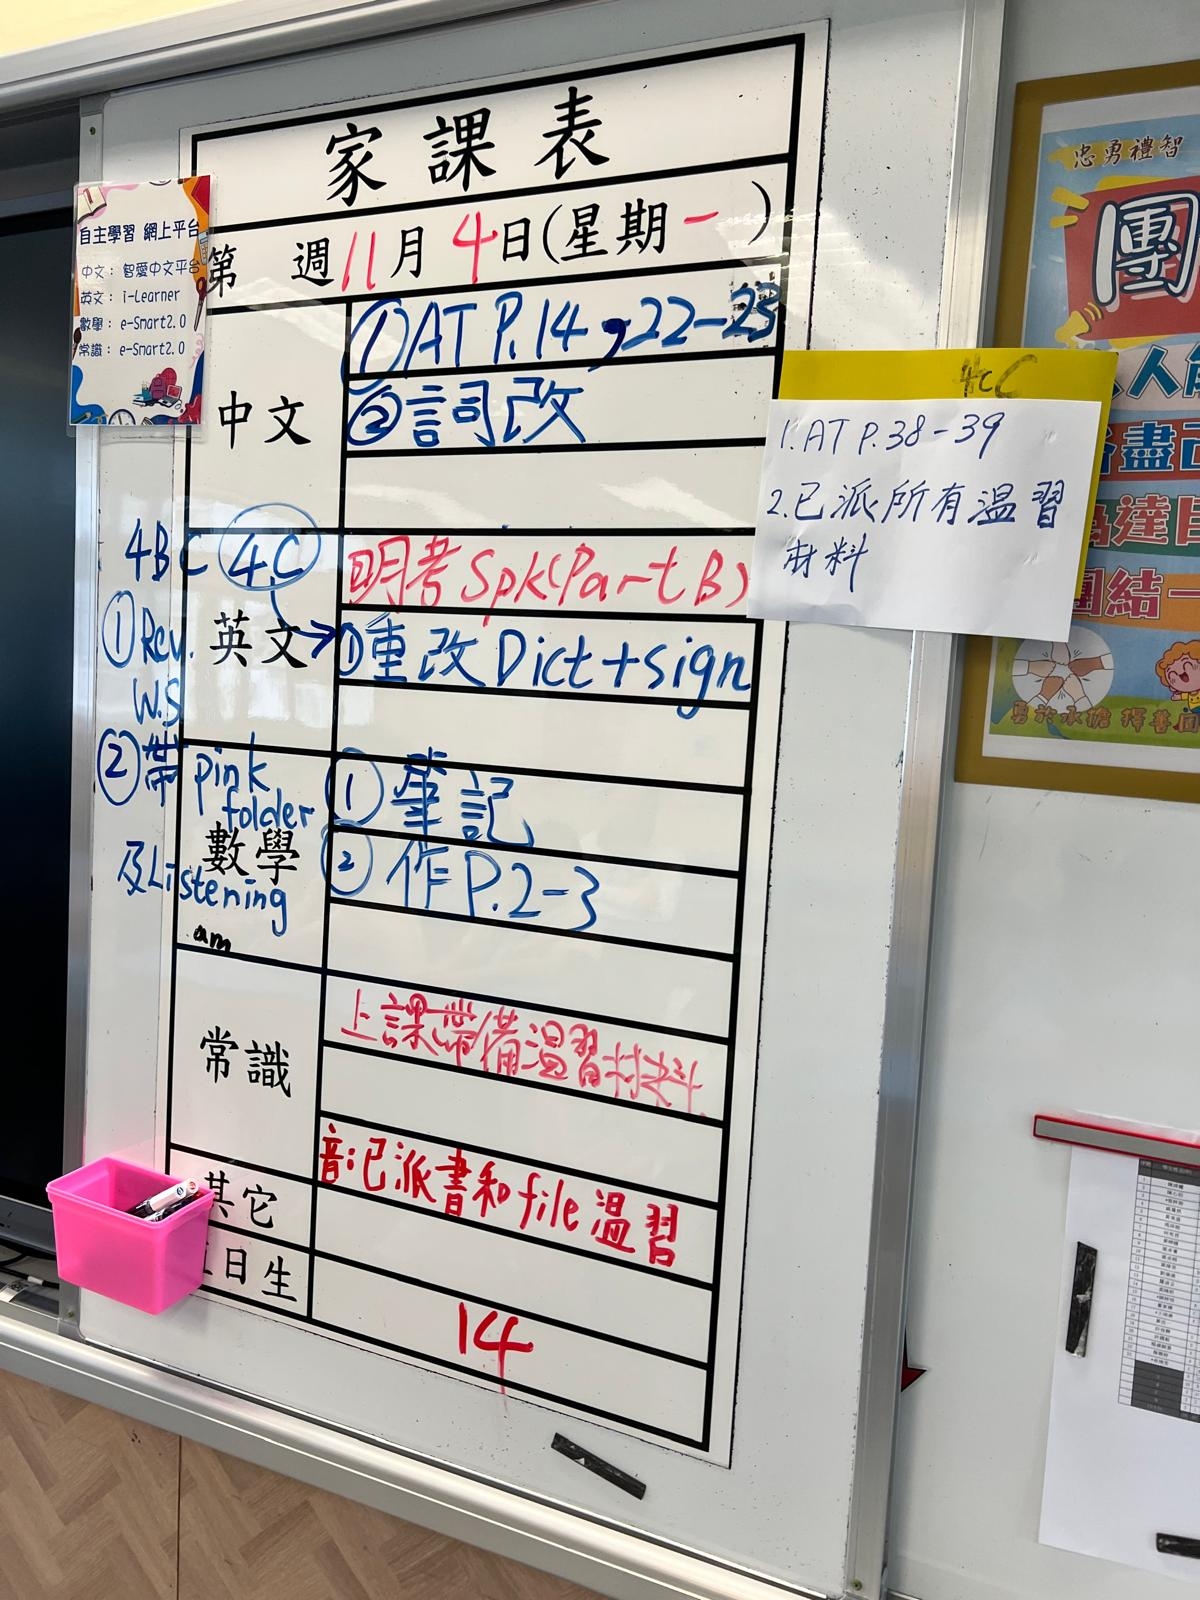 家課表
第 週 11月 4日(星期一)
自主學習 網上平台
中文：智愛中文平台
英文：i-Learner
數學：e-Smart2.0
常識：e-Smart2.0
中文
①AT P.14，22-23
②詞改
4cC
1. AT P.38-39
2. 已派所有溫習
材料
4B C 4C
英文
明考Spk(Part B)
①重改Dict+sign
①Rev.
W.S
②帶 pink
folder
及Listening
數學
①筆記
②作P.2-3
常識
上課帶備溫習材料
其它
音:已派書和file溫習
日生
14
忠勇禮智
團
人
盡己
達
團結一